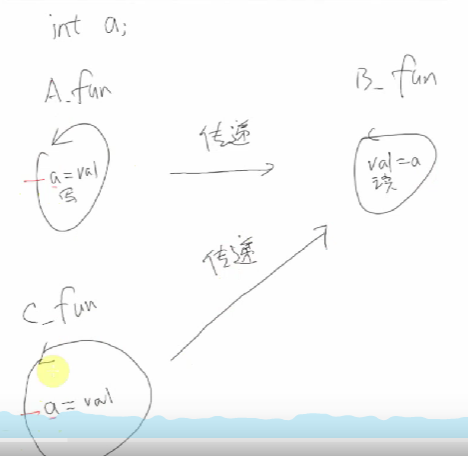 int a;
A_fun
a = val
写
传递
B_fun
val = a
读
传递
C_fun
a = val